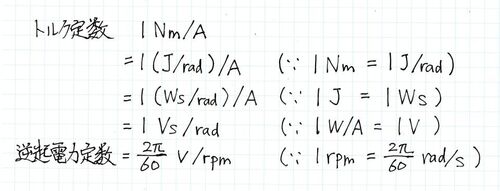 トルク定数 1 Nm/A
= 1 (J/rad)/A (∵ 1 Nm = 1 J/rad)
= 1 (Ws/rad)/A (∵ 1 J = 1 Ws)
= 1 Vs/rad (∵ 1 W/A = 1 V)
逆起電力定数 = 2π/60 V/rpm (∵ 1 rpm = 2π/60 rad/s)